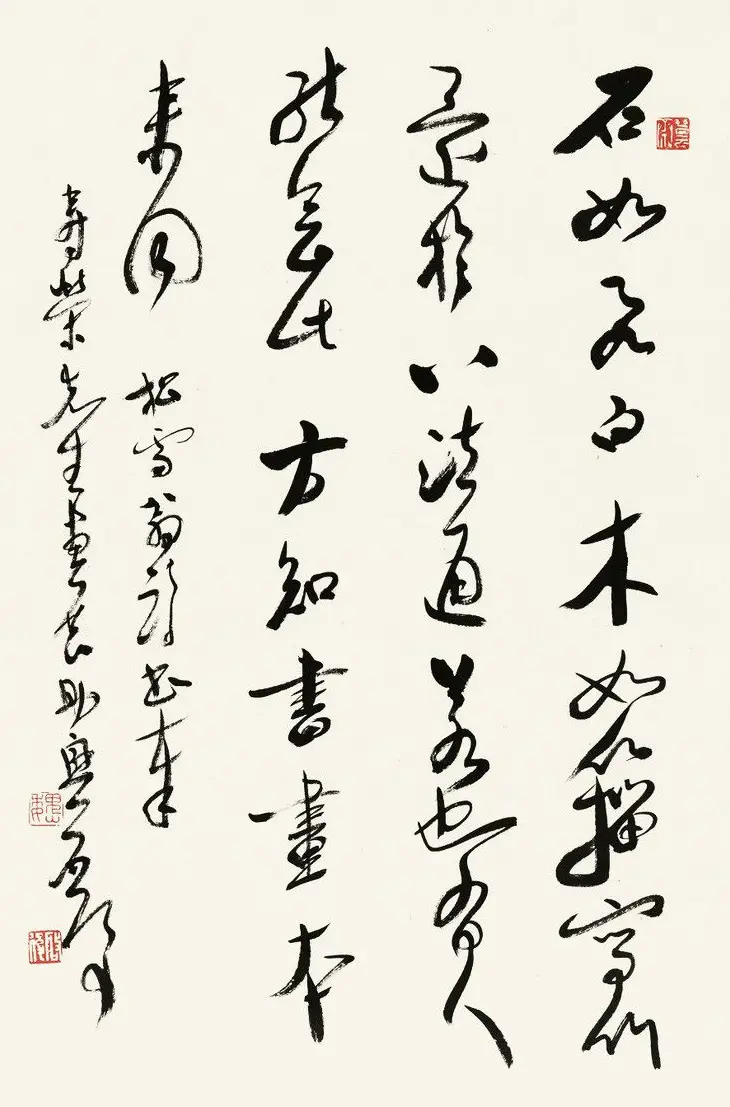 石如飛白木如籀寫竹
還於八法通若也有人
能會此方知書畫本
來同 松雪翁詩書奉
壽榮先生畫長